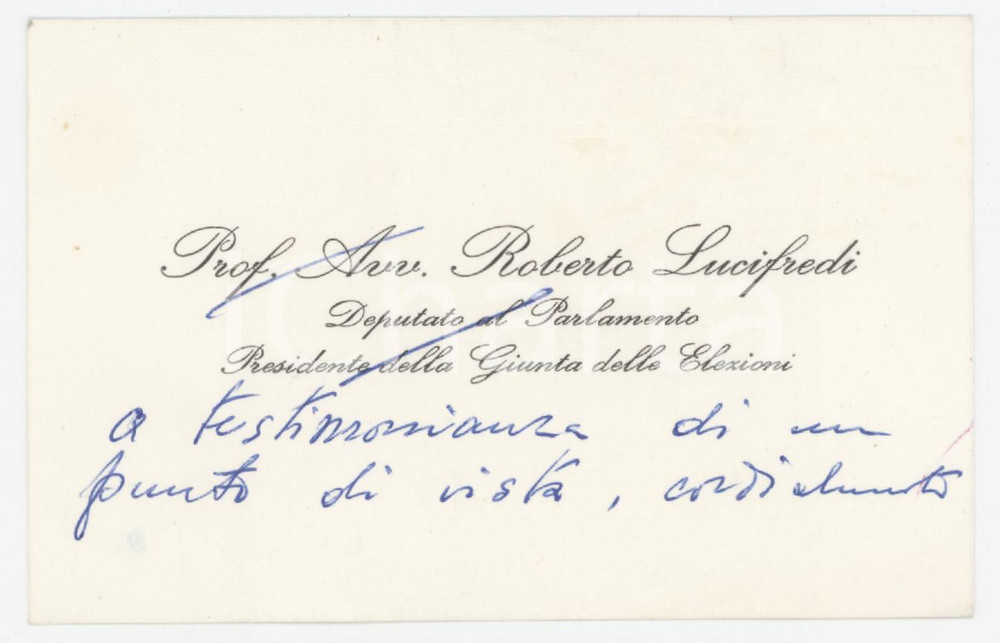 Prof. Avv. Roberto Lucifredi
Deputato al Parlamento
Presidente della Giunta delle Elezioni
a testimonianza di un
punto di vista, cordialmente